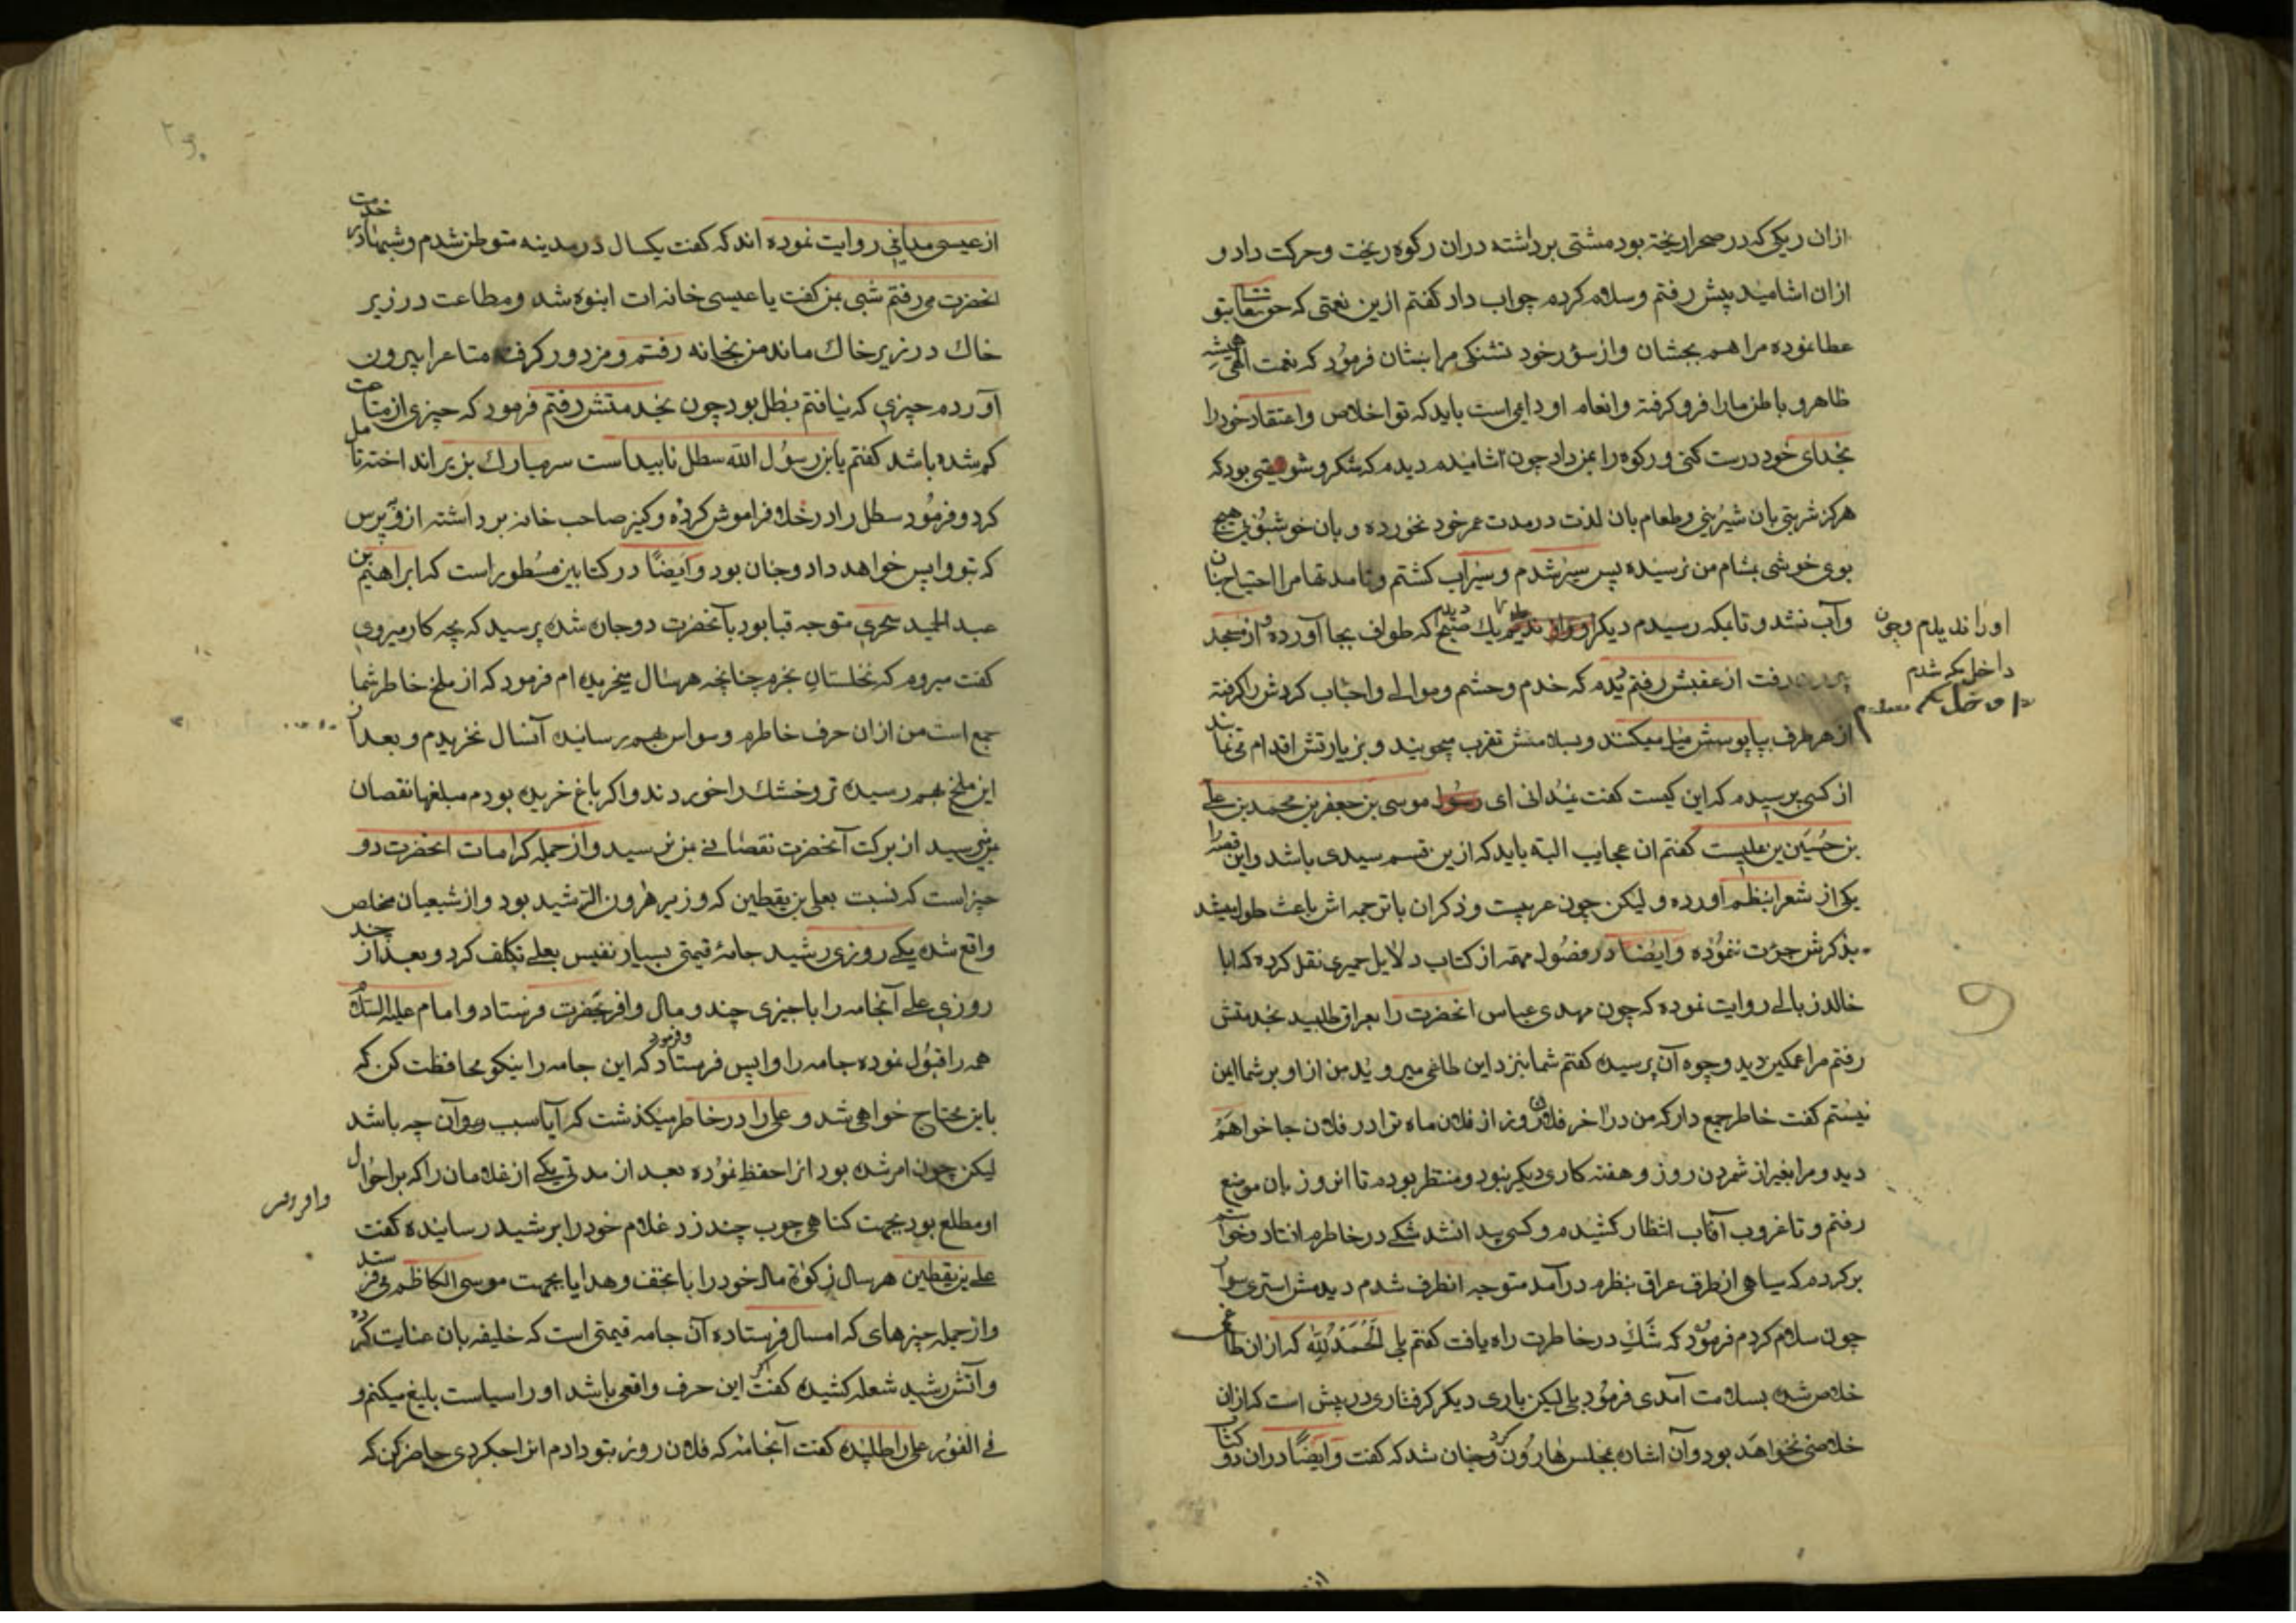 ازان ریکی که در صحرا ریخته بود مشتی برداشته دران رکوه ریخت و حرکت داد و
ازان اشامید پیش رفتم و سلام کردم جواب داد کفتم ازین نعمتی که حق تعالی بتو
عطا نموده مرا هم بچشان و از سؤر خود تشنکی مرا بنشان فرمود که نعمت الهی همیشه
ظاهر و باطن ما را فرو کرفته و انعام او دایمی است باید که تو اخلاص و اعتقاد خود را
بخدای خود درست کنی و رکوه را بمن داد چون اشامیدم دیدم که شکر و سویقی بود که
هرکز شربتی بان شیرینی و طعام بان لذت در مدت عمر خود نخورده و بان خوشبوئی هیچ
بوی خوشی بمشام من نرسیده پس سیر شدم و سیراب کشتم و تا مدتها مرا احتیاج بنان
و آب نشد و تا بمکه رسیدم دیکر او را ندیدم یک صبح دیدم که طواف بجا آورده و از مسجد
اورا ندیدم و چون
داخل مکه شدم
بیرون رفت از عقبش رفتم دیدم که خدم و حشم و موالی و احباب کردش را کرفته
از هر طرف بپابوسش میل میکنند و بسلامش تقرب میجویند و بزیارتش اقدام می نمایند
از کسی پرسیدم که این کیست کفت نمیدانی ای رسول موسی بن جعفر بن محمد بن علی
بن حسین بن علیست کفتم ان عجایب البته باید که ازین قسم سیدی باشد و این قصه را
یکی از شعرا بنظم آورده و لیکن چون عربیست و ذکر ان با ترجمه اش باعث طول میشد
بذکرش جرئت ننموده و ایضا در فصول مهمه از کتاب دلایل حمیری نقل کرده که ابا
خالد زبالی روایت نموده که چون مهدی عباس انحضرت را بعراق طلبید بخدمتش
رفتم مرا غمکین دید وجوه آن پرسید کفتم شما بنزد این طاغی میروید من از او بر شما ایمن
نیستم کفت خاطر جمع دار که من در اخر فلان روز از فلان ماه ترا در فلان جا خواهم
دید و مرا بغیر از شمردن روز و هفته کاری دیکر نبود و منتظر بودم تا انروز بان موضع
رفتم و تا غروب آفتاب انتظار کشیدم و کسی پیدا نشد شکی در خاطرم افتاد و خواستم
برکردم که سیاهی از طرف عراق بنظرم درآمد متوجه انطرف شدم دیدمش استری سوار
چون سلام کردم فرمود که شک در خاطرت راه یافت کفتم بلی الحمد لله که ازان طاغی
خلاص شده بسلامت آمدی فرمود بلی لیکن باری دیکر کرفتاری در پیش است که ازان
خلاصی نخواهد بود و آن اشاره بمجلس هارون کرد و چنان شد که کفت و ایضا دران دو کتاب
از عیسی مداینی روایت نموده اند که کفت یکسال در مدینه متوطن شدم و شبها در خدمت
انحضرت میرفتم شبی بمن کفت یا عیسی خانه ات انبوه شد و متاعت در زیر
خاک در زیر خاک ماند من بخانه رفتم و مزدور کرفته متاع را بیرون
آوردم چیزی که نیافتم سطل بود چون بخدمتش رفتم فرمود که چیزی از متاعت
کم شده باشد کفتم یا بن رسول الله سطل ناپیداست سر مبارک بزیر انداخته تامل
کرد و فرمود سطل را در خلا فراموش کرده و کنیز صاحب خانه برداشته از و بپرس
که بتو واپس خواهد داد و چنان بود و ایضا در کتابین مسطور است که ابراهیم بن
عبد الحمید سحری متوجه قبا بود بآنحضرت دوچان شده پرسید که بچه کار میروی
کفت میروم که نخلستان بخرم چنانچه هر سال میخریده ام فرمود که از ملخ خاطر شما
جمع است من ازان حرف خاطرم وسواس بهم رسانیده آنسال نخریدم و بعد ازان
این ملخ بهم رسیده تر و خشک را خوردند و اکر باغ خریده بودم مبلغها نقصان
بمن میرسید از برکت آنحضرت نقصانی بمن نرسید و از جمله کرامات انحضرت دو
چیز است که نسبت بعلی بن یقطین که وزیر هرون الرشید بود و از شیعیان مخلص
واقع شده یکی روزی رشید جامهٔ قیمتی بسیار نفیس بعلی تکلف کرد و بعد از چند
روزی علی آنجامه را با چیزی چند و مال وافر بحضرت فرستاد و امام علیه السلام
همه را قبول نموده جامه را واپس فرستاد و فرمود که این جامه را نیکو محافظت کن که
باین محتاج خواهی شد و علی را در خاطر میکذشت که آیا سبب رد آن چه باشد
لیکن چون امر شده بود انرا حفظ نموده بعد از مدتی یکی از غلامان را که بر احوال
او مطلع بود بجهت کناهی چوب چند زد غلام خود را برشید رسانیده کفت
علی بن یقطین هر سال زکوة مال خود را با تحف و هدایا بجهت موسی الکاظم می فرستد
و از جمله چیزهای که امسال فرستاده آن جامه قیمتی است که خلیفه بان عنایت کرده
و آتش رشید شعله کشیده کفت اکر این حرف واقعی باشد او را سیاست بلیغ میکنم و
فی الفور علی را طلبیده کفت آنجامه که فلان روز بتو دادم انرا چکردی حاضر کن که